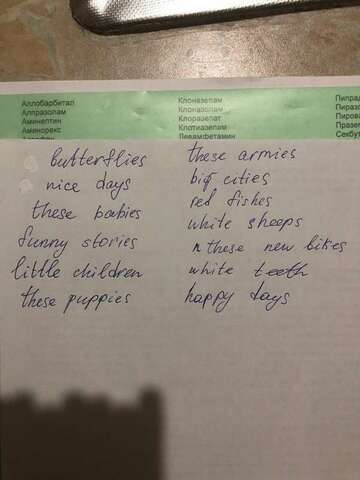 Аллобарбитал
Алпразолам
Аминептин
Аминорекс
Клоназепам
Клоназолам
Клоразепат
Клотиазепам
Левамфетамин
butterflies
nice days
these babies
funny stories
little children
these puppies
these armies
big cities
red fishes
white sheeps
these new bikes
white teeth
happy days